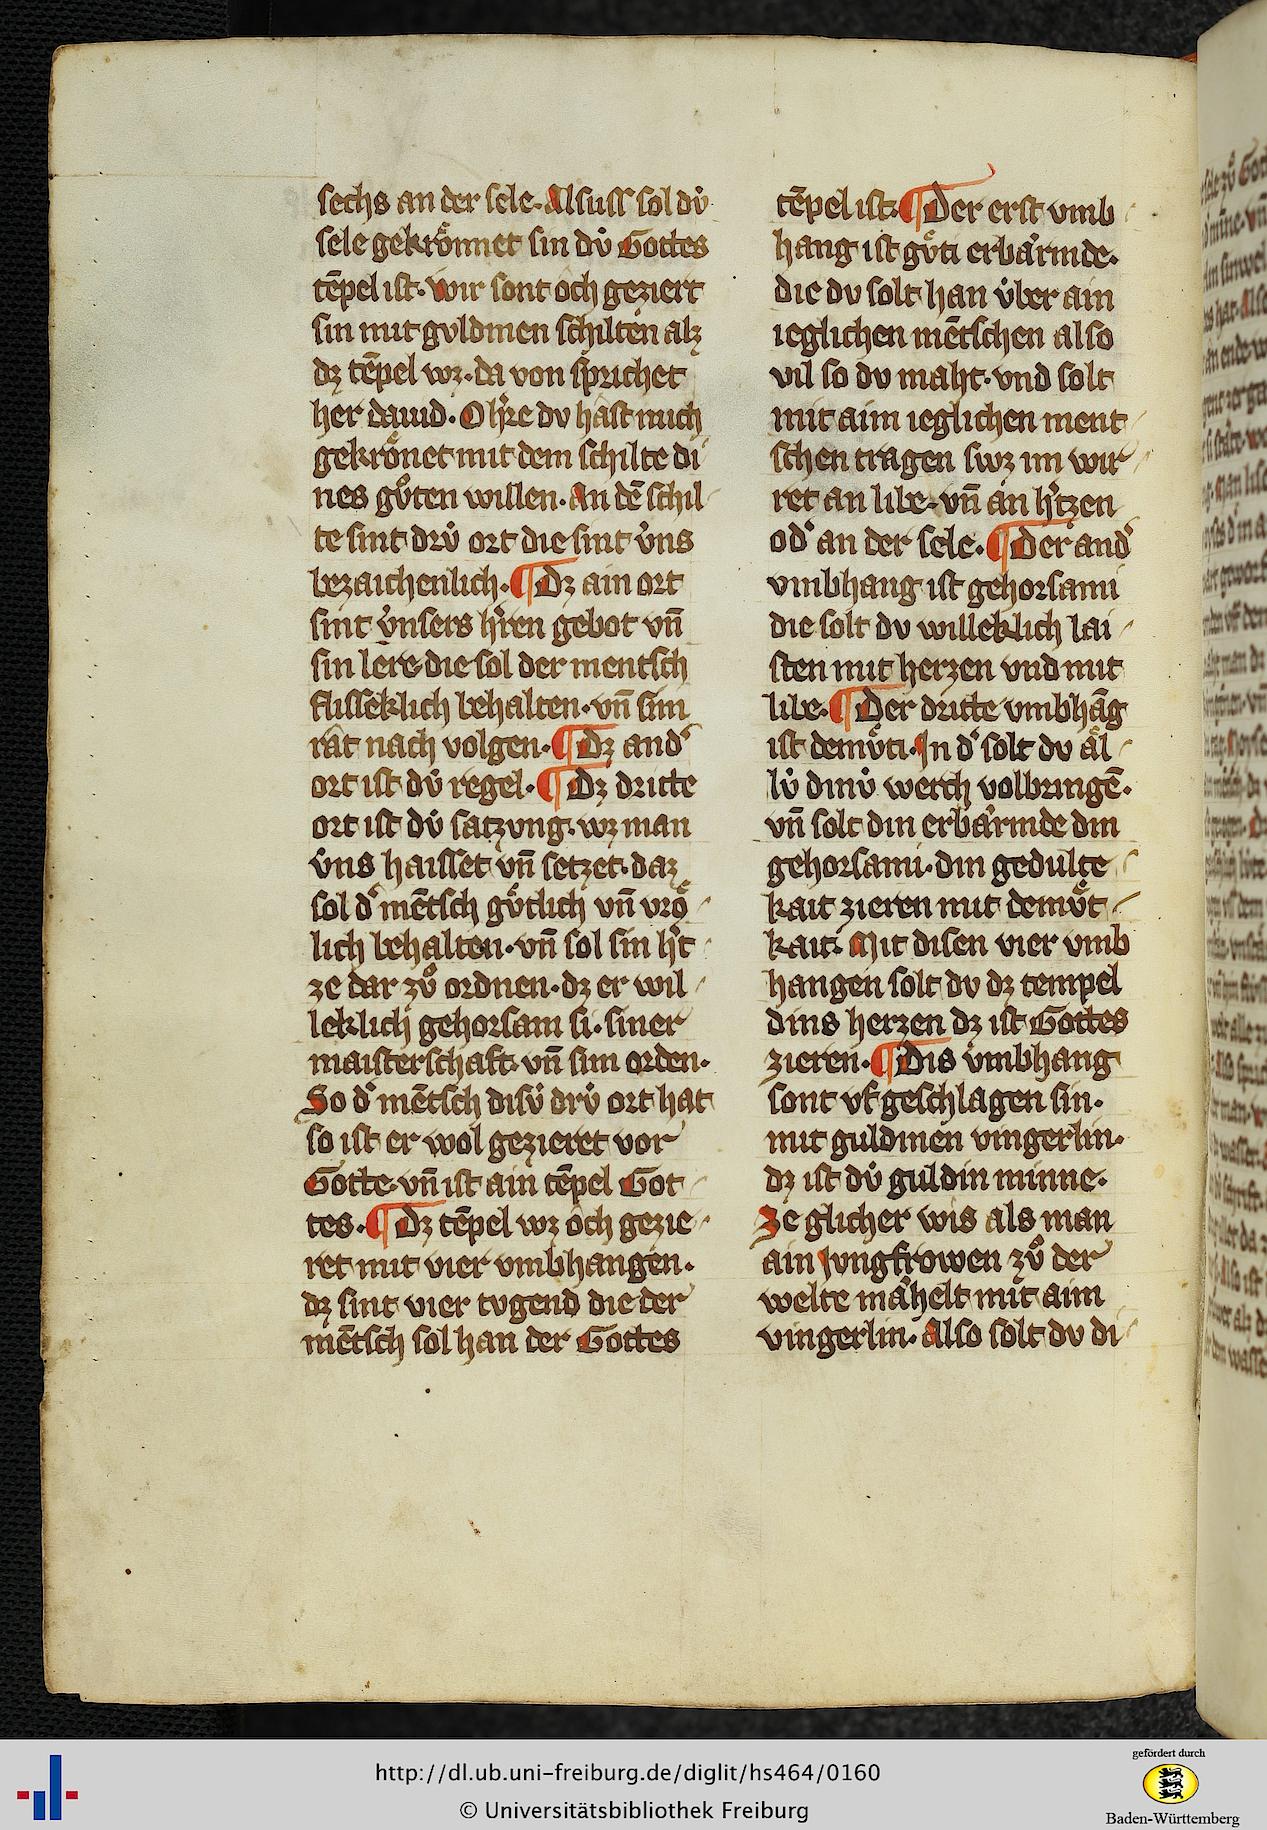 sechs an der sele. Alsuss sol dv̍
sele gekrȯ̂nnet sin dv̍ Gottes
tēpel ist. wir sont och geziert
sin mit gvldinen schilten alz
dz tēpel wz. da von sprichet
her dauid. O h̍re dv hâst mich
gekrȯ̂net mit dem schilte di
nes gůten willen. An dē schil
te sint drv̍ ort die sint v̍ns
bezaichenlich. ¶ Dz ain ort
sint v̍nsers h̍ren gebot vn̄
sin lere die sol der mentsch
flisseklich behalten. vn̄ sim
rât nach volgen. ¶ Dz and̍
ort ist dv̍ regel. ¶ Dz dritte
ort ist dv̍ satzvng. wz man
v̍ns haisset vn̄ setzet. daz
sol d̍ mētsch gůtlich vn̄ vrȯ̂
lich behalten. vn̄ sol sin h̍t
ze dar zů ordnen. dz er wil
leklich gehorsam si. siner
maisterschaft. vn̄ sim orden.
So d̍ mētsch disv̍ drv̍ ort hat
so ist er wol gezieret vor
Gotte. vn̄ ist ain tēpel Got
tes. ¶ Dz tēpel wz och gezie
ret mit vier vmbhangen.
dz sint vier tvgend die der
mētsch sol han der Gottes
tēpel ist. ¶ Der erst vmb
hang ist gůti erbârmde.
die dv solt han v̍ber ain
ieglichen mētschen also
vil so dv maht. vnd solt
mit aim ieglichen ment
schen tragen swz im wir
ret an libe. vn̄ an h̍tzen
od̍ an der sele. ¶ Der and̍
vmbhang ist gehorsami
die solt dv willeklich lai
sten mit herzen vnd mit
libe. ¶ Der dritte vmbhāg
ist demůti. In d̍ solt dv âl
lv̍ dinv̍ werch volbringē.
vn̄ solt din erbârmde din
gehorsami. din gedulte
kait zieren mit demůt
kait. Mit disen vier vmb
hangen solt dv dz tempel
dins herzen dz ist Gottes
zieren. ¶ Dis vmbhang
sont vf geschlagen sin.
mit guldinen vingerlin.
dz ist dv̍ guldin minne.
Ze glicher wis als man
ain Jvngfrowen zů der
welte mâhelt mit aim
vingerlin. Also solt dv di
http://dl.ub.uni-freiburg.de/diglit/hs464/0160
© Universitätsbibliothek Freiburg
gefördert durch
Baden-Württemberg